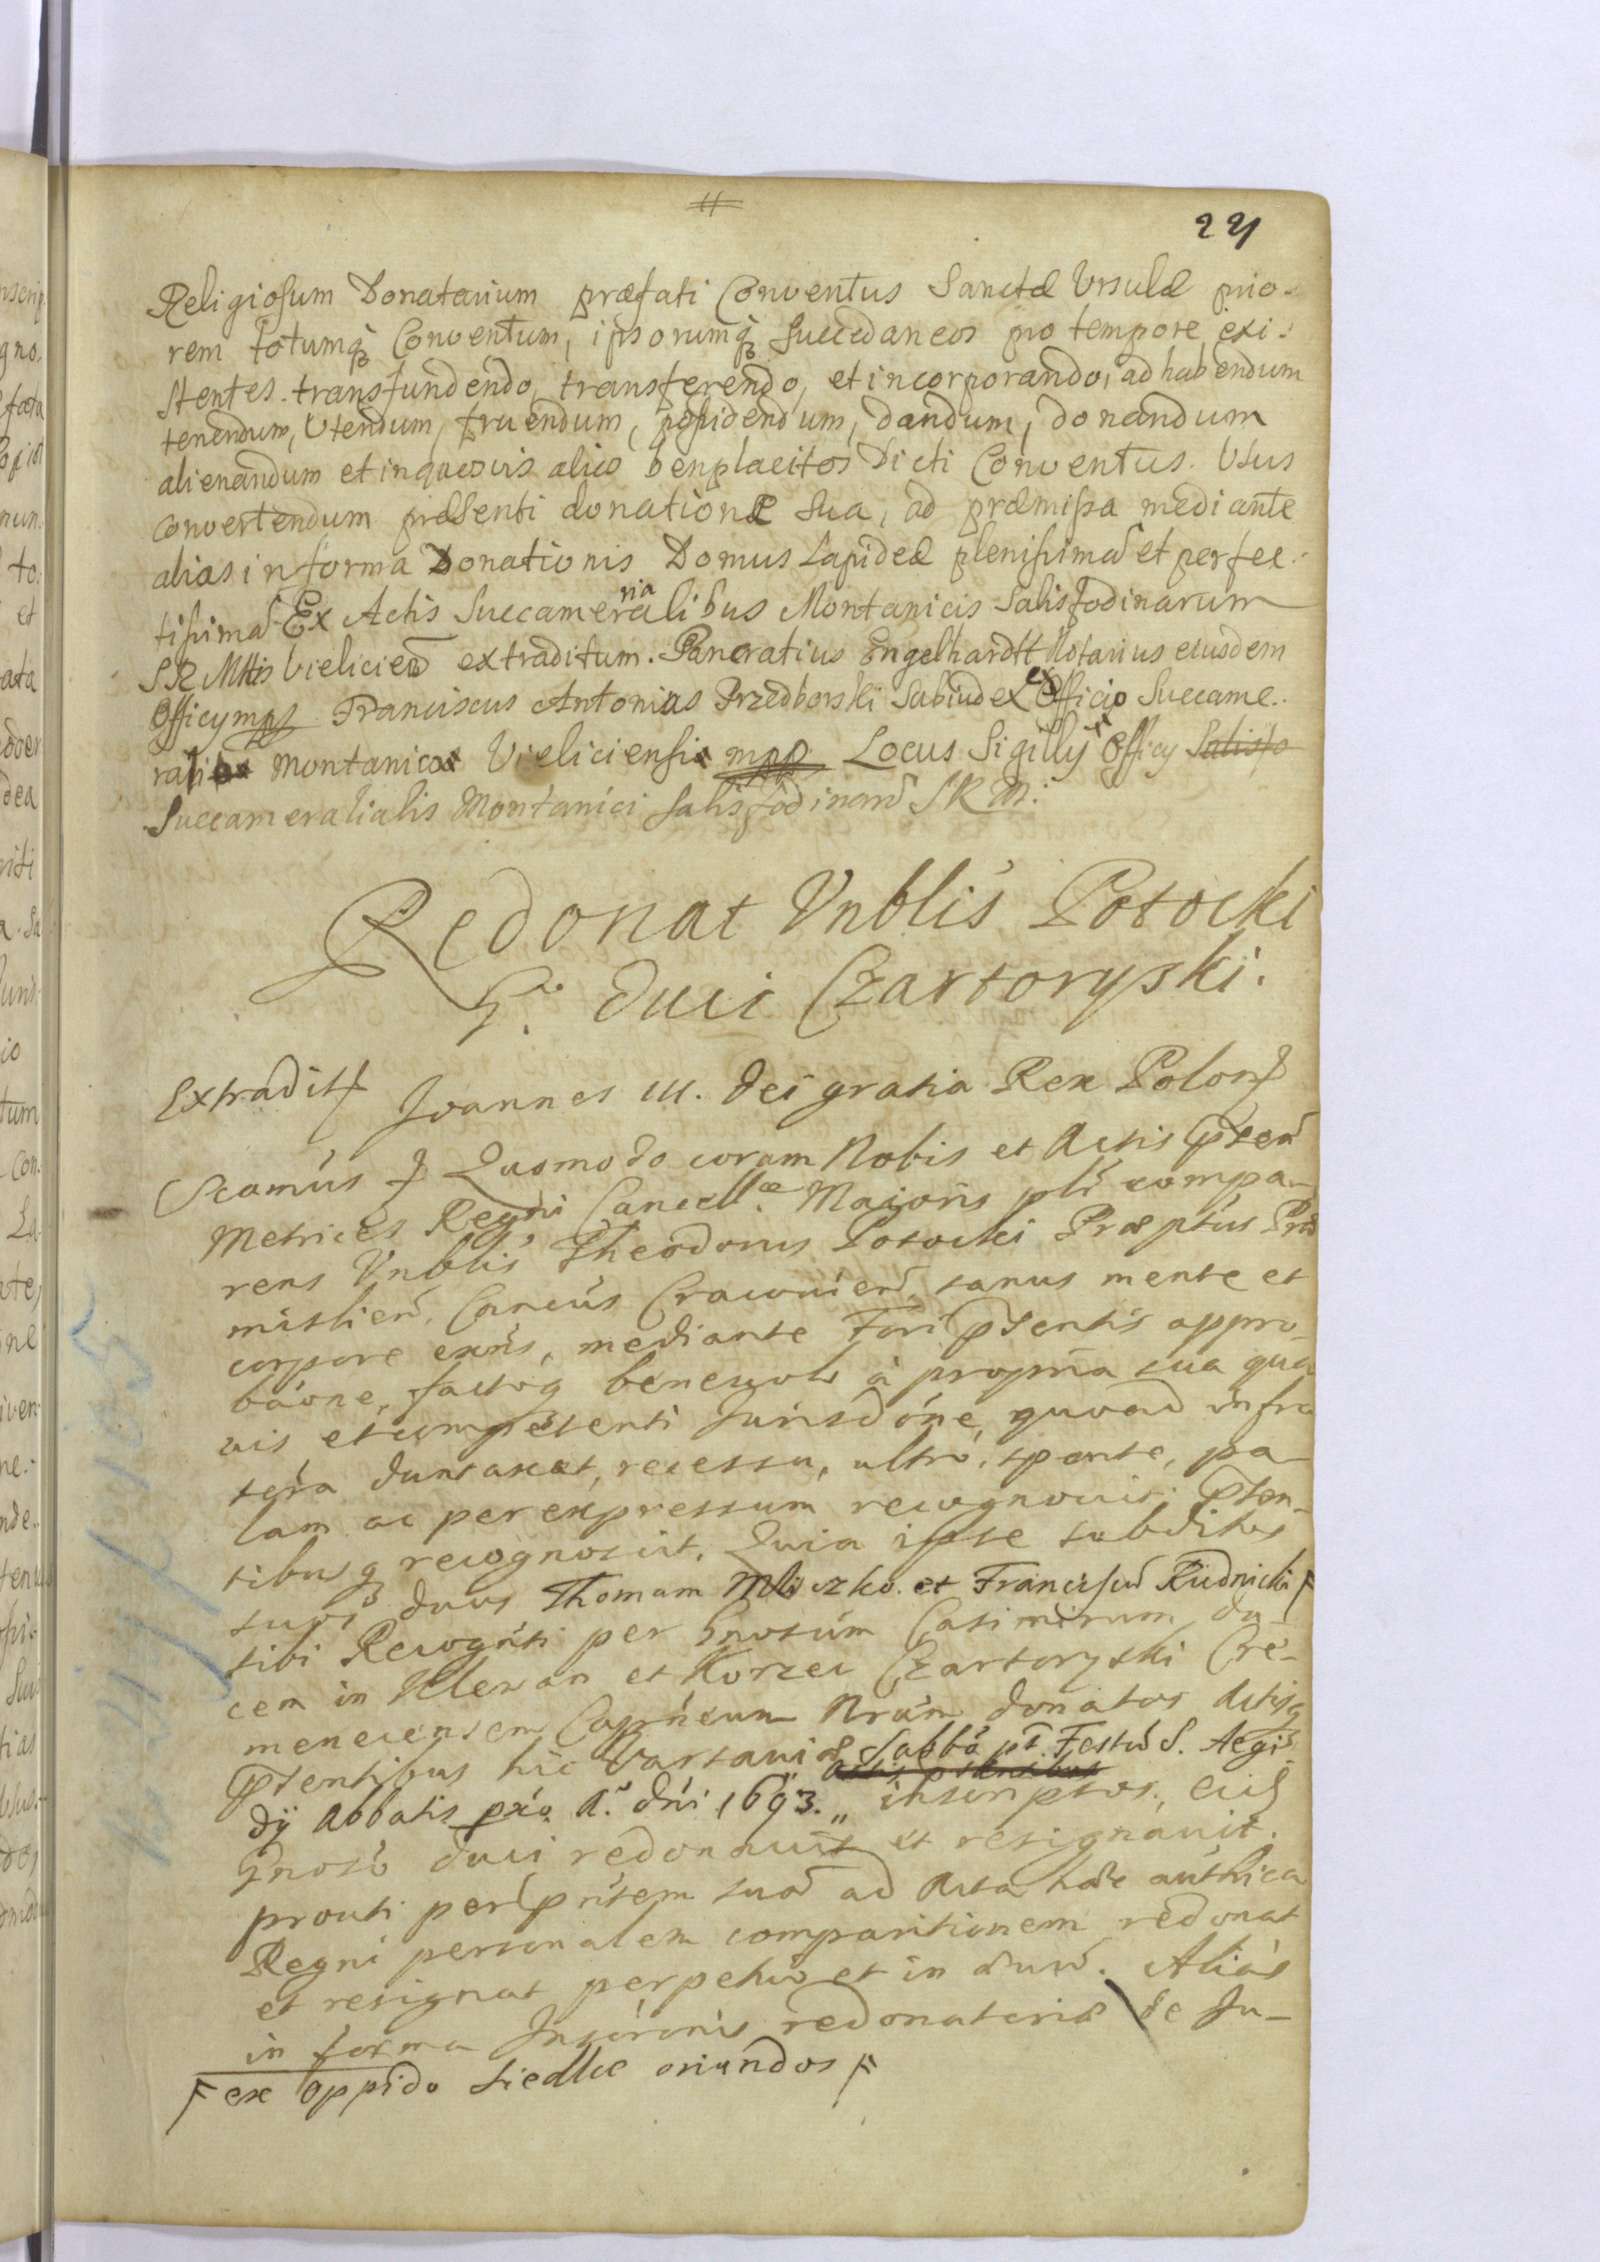 221
Religiosum Donatarium præfati Conventus Sanctæ Vrsulæ prio-
rem totumq; Conventum, ipsorumq; succedaneos pro tempore exi-
stentes. transfundendo, transferendo, et incorporando, ad habendum
tenendum, Utendum, fruendum, possidendum, dandum, donandum
alienandum et in quosvis alios benplacitos dicti Conventus. Usus
convertendum præsenti donatione sua, ad præmissa mediante
alias in forma Donationis Domus Lapideæ plenissima et perfec-
tissima Ex Actis Succameralibus Montanicis Salisfodinarum
SRMttis Vielicien extraditum. Pancratius Engelhardtt Notarius eiusdem
Officy mpp Franciscus Antonius Przedborski Subiudex ex Officio Succame-
rali Montanico Vieliciensi mpp Locus Sigilly Officy Salisfo
Succameralialis Montanici Salisfodinarū SRM:
Redonat Vnblis Potocki
Duci Czartoryski.
Extradit Joannes III. Dei gratia Rex Polon
Quomodo coram Nobis et Actis pnten
Metrices Regni Cancellæ Maioris plr compa-
rens Vnblis Theodorus Potocki Præptus
mislien, Cancus Cracovien, sanus mente et
corpore exns, mediante Fori pntentis appro-
baone, factoq benevole à propria sua qua
vis et competenti Jurisdone, quoad infra
scra duntaxat, recessu, ultro, sponte, pa-
lam ac per expressum recognovit: pnten-
tibusq recognoscit. Quia ipse subditos
suos duos Thomam Mliczko et Franciscū Rudnicki F
sibi Recognti per Gnosum Casimirum du-
cem in Klewan et Korzec Czartoryski Cre-
menecensem Capneum Nrum donatos Actisq
pntentibus hic Varsaviæ Sabbo pt Festū S. Aegi-
dÿ Abbatis pxo. Ao. dni 1693. actis ptentibus inscriptos, eid
Gnoso duci redonavit et resignavit.
prouti per pntem suā ad Acta hæc authca
Regni personalem comparitionem redonat
et resignat perpetuo et in ævū. Aliàs
in forma Inscrónis redonatoriæ de Ju-
F ex oppido Siedlce oriundos F